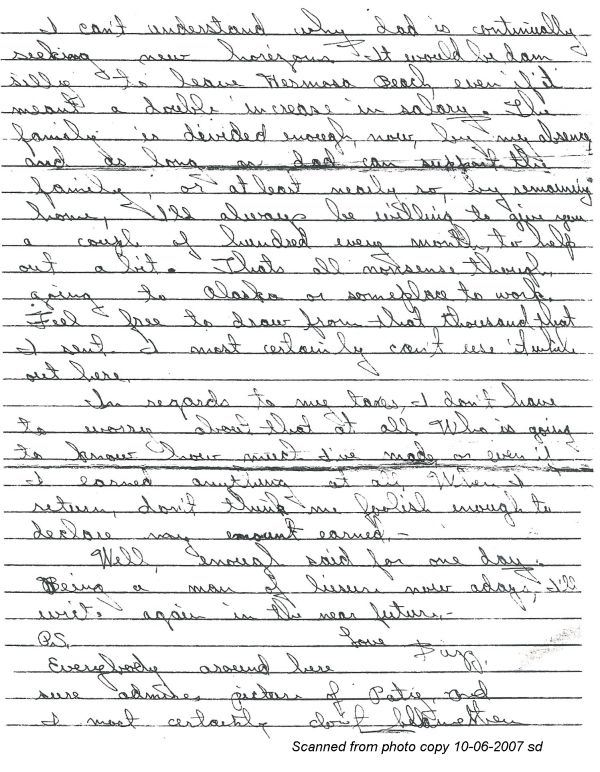 I can't understand why dad is continually
seeking new horizons. It would be dam
sillie to leave Hermosa Beach, even if it
meant a double increase in salary. The
family is divided enough, now, by my absence
and as long as dad can support the
family, or at least nearly so, by remaining
home, I'll always be willing to give you
a couple of hundred every month, to help
out a bit. Thats all nonsense though,
going to Alaska or someplace to work.
Feel free to draw from that thousand that
I sent. I most certainly can't use it while
out here.
In regards to my taxes, - I don't have
to worry about that at all. Who is going
to know how much I've made or even if
I earned anything at all. When I
return, don't think me foolish enough to
declare my amount earned. -
Well, enough said for one day.
Being a man of liesure now adays, I'll
write again in the near future. -
P.S. Love Buzz.
Everybody around here
sure admires picture of Patig and
I most certainly don't blame them
Scanned from photo copy 10-06-2007 sd